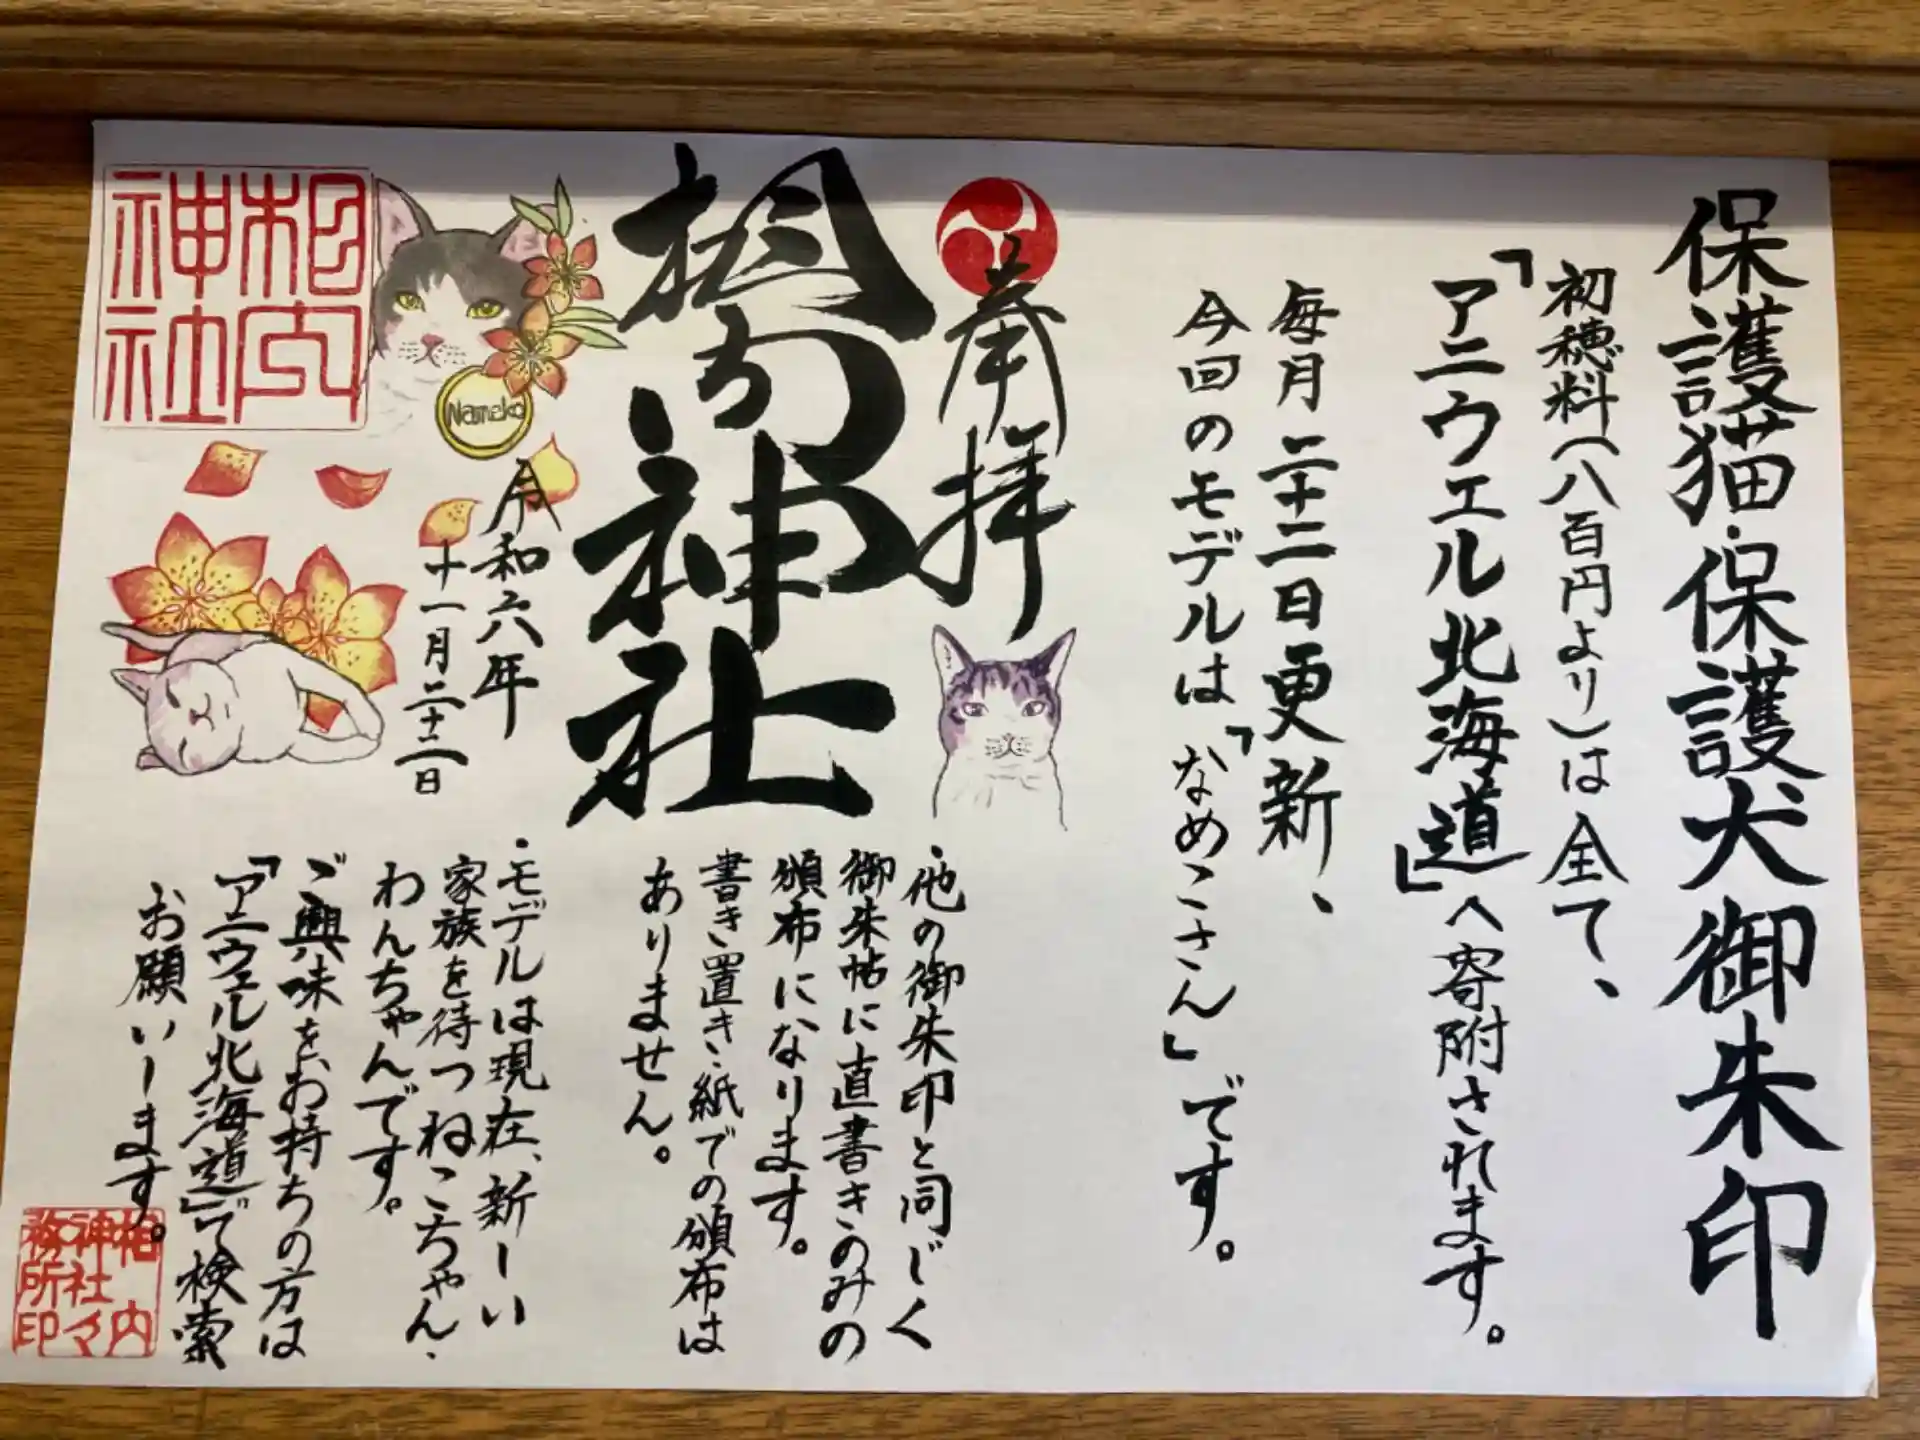 保護猫・保護犬御朱印
初穂料(八百円より)は全て、
「アニウェル北海道」へ寄附されます。
毎月二十二日更新、
今回のモデルは「なめこさん」です。
奉拝
相内神社
令和六年
十一月二十二日
相内
神社
Nameko
・他の御朱印と同じく
御朱帖に直書きのみの
頒布になります。
書き置き・紙での頒布は
ありません。
・モデルは現在、新しい
家族を待つねこちゃん・
わんちゃんです。
ご興味をお持ちの方は
「アニウェル北海道」で検索
お願いします。
相内
神社々
務所印